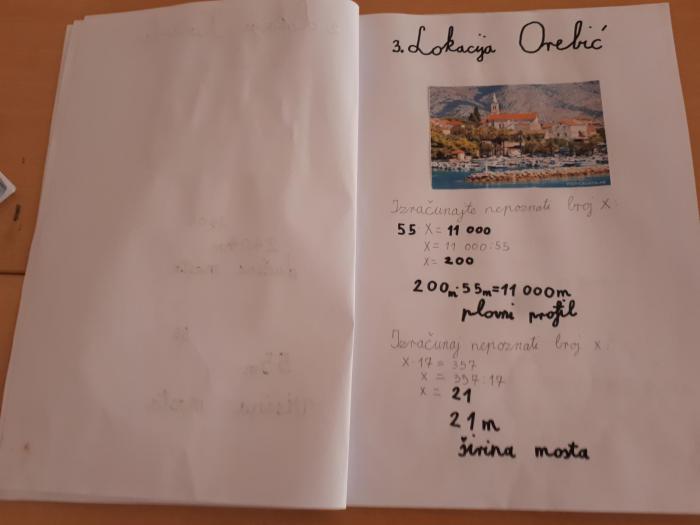 3. Lokacija Orebić
Izračunajte nepoznati broj x:
55 x = 11 000
x = 11 000:55
x = 200
200m·55m=11 000m
plovni profil
Izračunaj nepoznati broj x:
x·17 = 357
x = 357:17
x = 21
21m
širina mosta